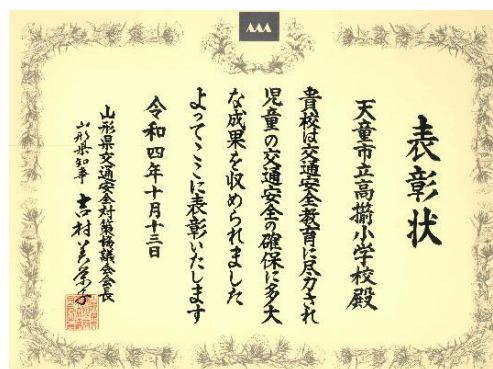 表彰状
天童市立高擶小学校殿
貴校は交通安全教育に尽力され
児童の交通安全の確保に多大
な成果を収められました
よってここに表彰いたします
令和四年十月十三日
山形県交通安全対策協議会会長
山形県知事 吉村美栄子